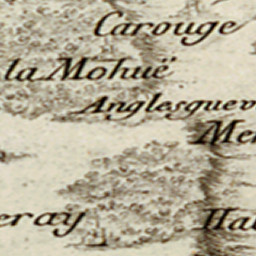 Carouge
la Mohuë
Anglesquev
Me
eray
Hal